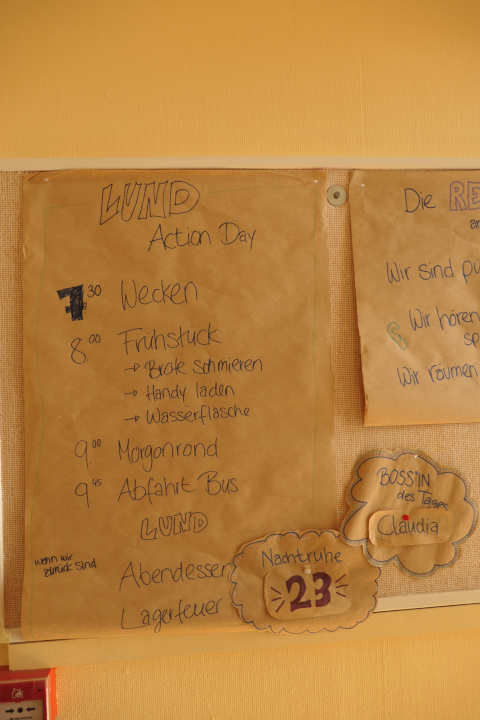 LUND
Action Day
7 30 Wecken
8 00 Frühstück
→ Brote schmieren
→ Handy laden
→ Wasserflasche
9 00 Morgonrond
9 45 Abfahrt Bus
LUND
wenn wir
zurück sind
Abendessen
Lagerfeuer
Nachtruhe
23
Die RE
an
Wir sind pü
Wir hören
sp
Wir räumen
BOSS*IN
des Tages
Claudia